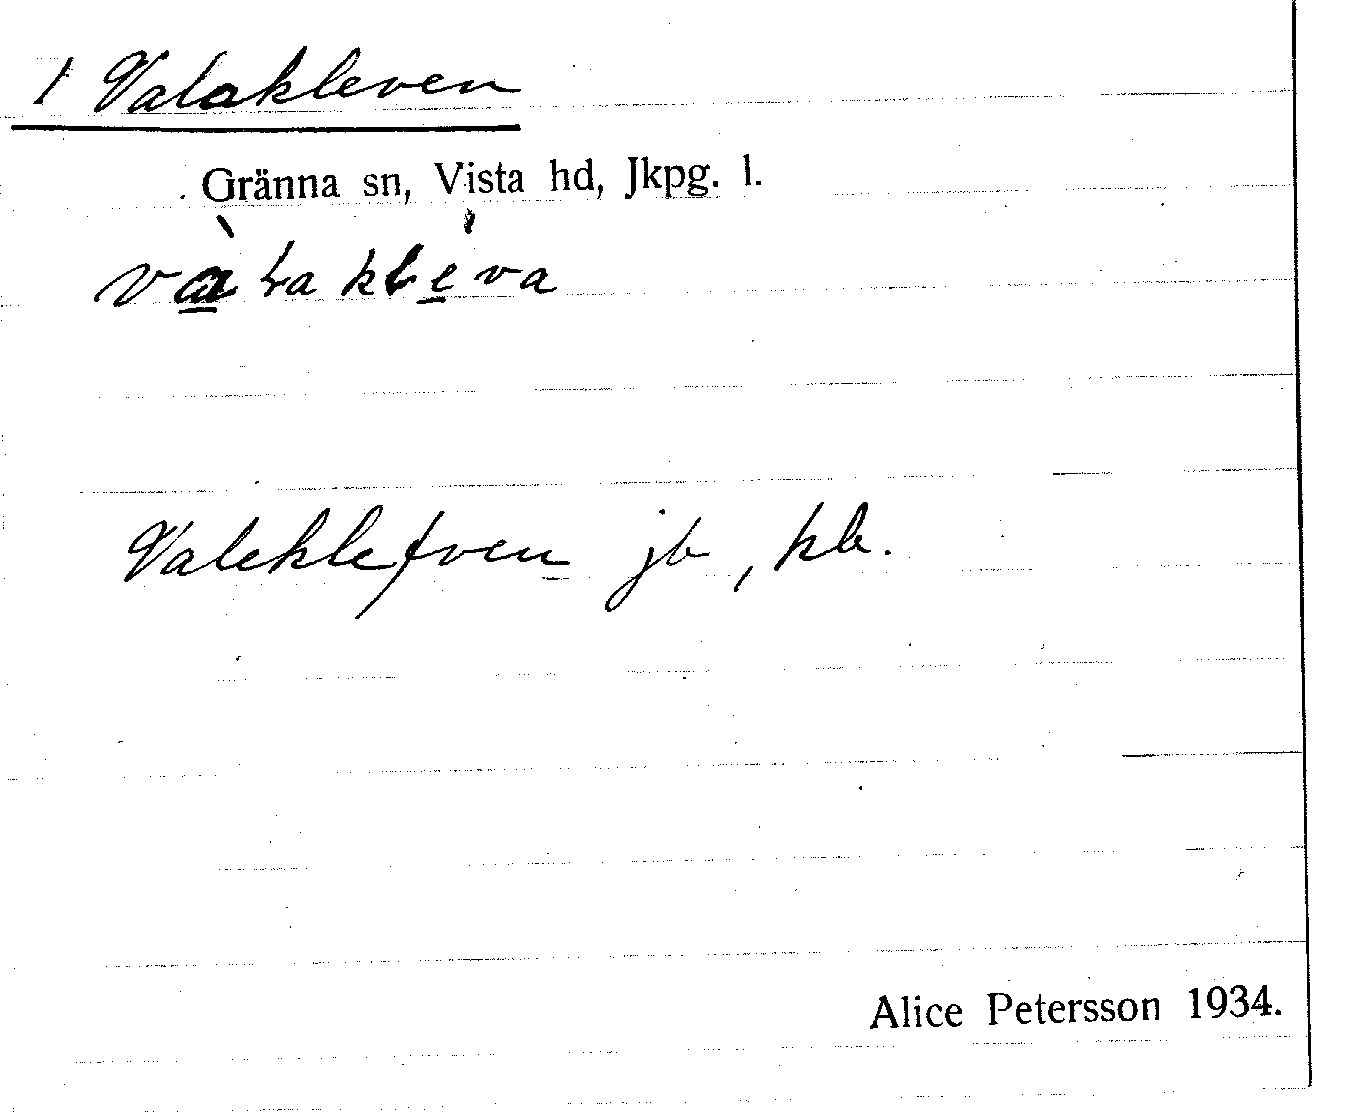 1 Valakleven
Gränna sn, Vista hd, Jkpg. l.
vàlaklėva
Valeklefven jb, kb.
Alice Petersson 1934.